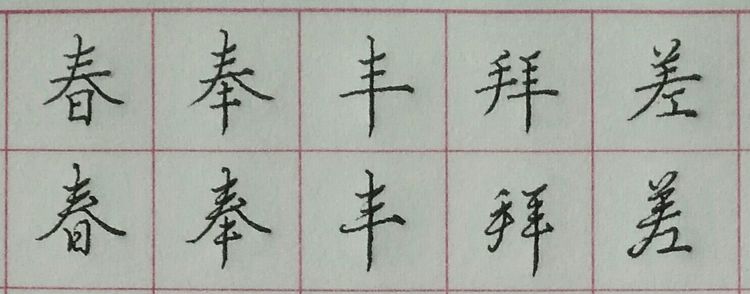 春奉丰拜差
春奉丰拜差